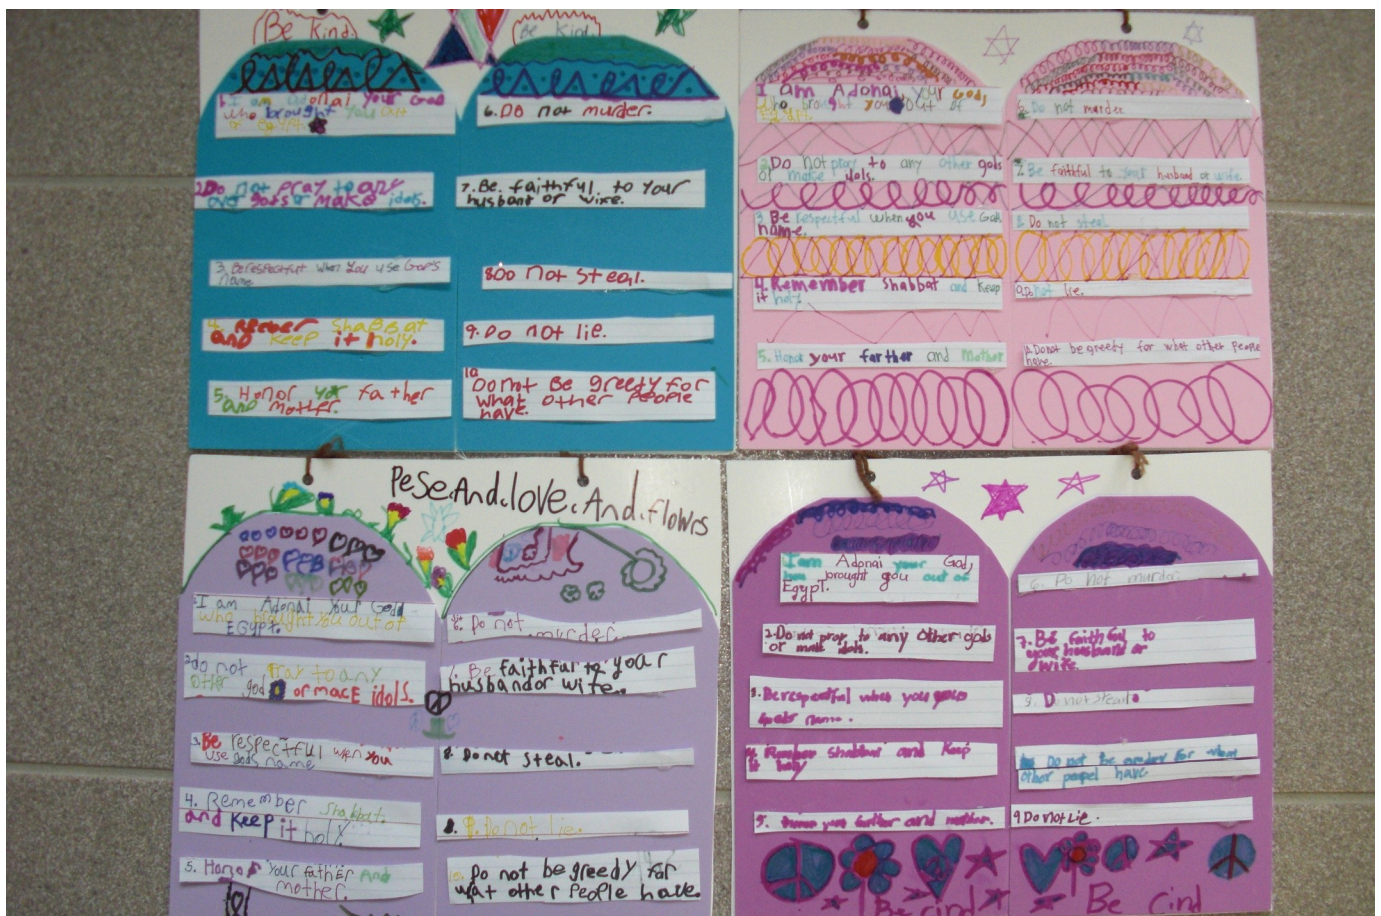 Be Kind.
Be Kind.
1. I am Adonai your God
who brought you out
of Egypt.
2. Do not pray to any
over gods or make idols.
3. Be respectful when you use God's
name.
4. Remeber Shabbat
and keep it holy.
5. Honor your father
and mother.
6. Do not murder.
7. Be faithful to your
husband or wife.
8. Do not steal.
9. Do not lie.
10
Do not Be greedy for
what other people
have.
I am Adonai, your God,
who brought you out of
Egypt.
2. Do not pray to any other gods
or make idols.
3. Be respectful when you use Gods
name.
4. Remember Shabbat and keep
it holy.
5. Honor your farther and Mother
6. Do not murder
7. Be faithful to your husband or wife.
8. Do not steal
9. Do not lie.
10. Do not be greety for what other people
have.
Pese.And.love.And.flowrs
I am Adonai your Godd
who brought you out of
EGYpt.
2. do not pray to any
other god or macE idols.
3. Be respectful when you
use gods name
4. Remember Shabbat.
and keep it holy.
5. Honor your father And
mother.
6. Do not murder.
7. Be faithful to your
husband or wife.
8. Do not steal.
9. Do not lie.
Do not be greedy for
wat other people have.
I am Adonai your God,
brought you out of
Egypt.
2. Do not pray to any other gods
or make idols.
3. Be respectful when you
gods name.
4. Remember Shabbat and keep
it
5. your farther and mother.
6. Do not murder
7. Be faithful to
your husband or
wife.
8. Do not steal.
Do not be for
other have.
9 Do not Lie.
Be cind
Be Cind